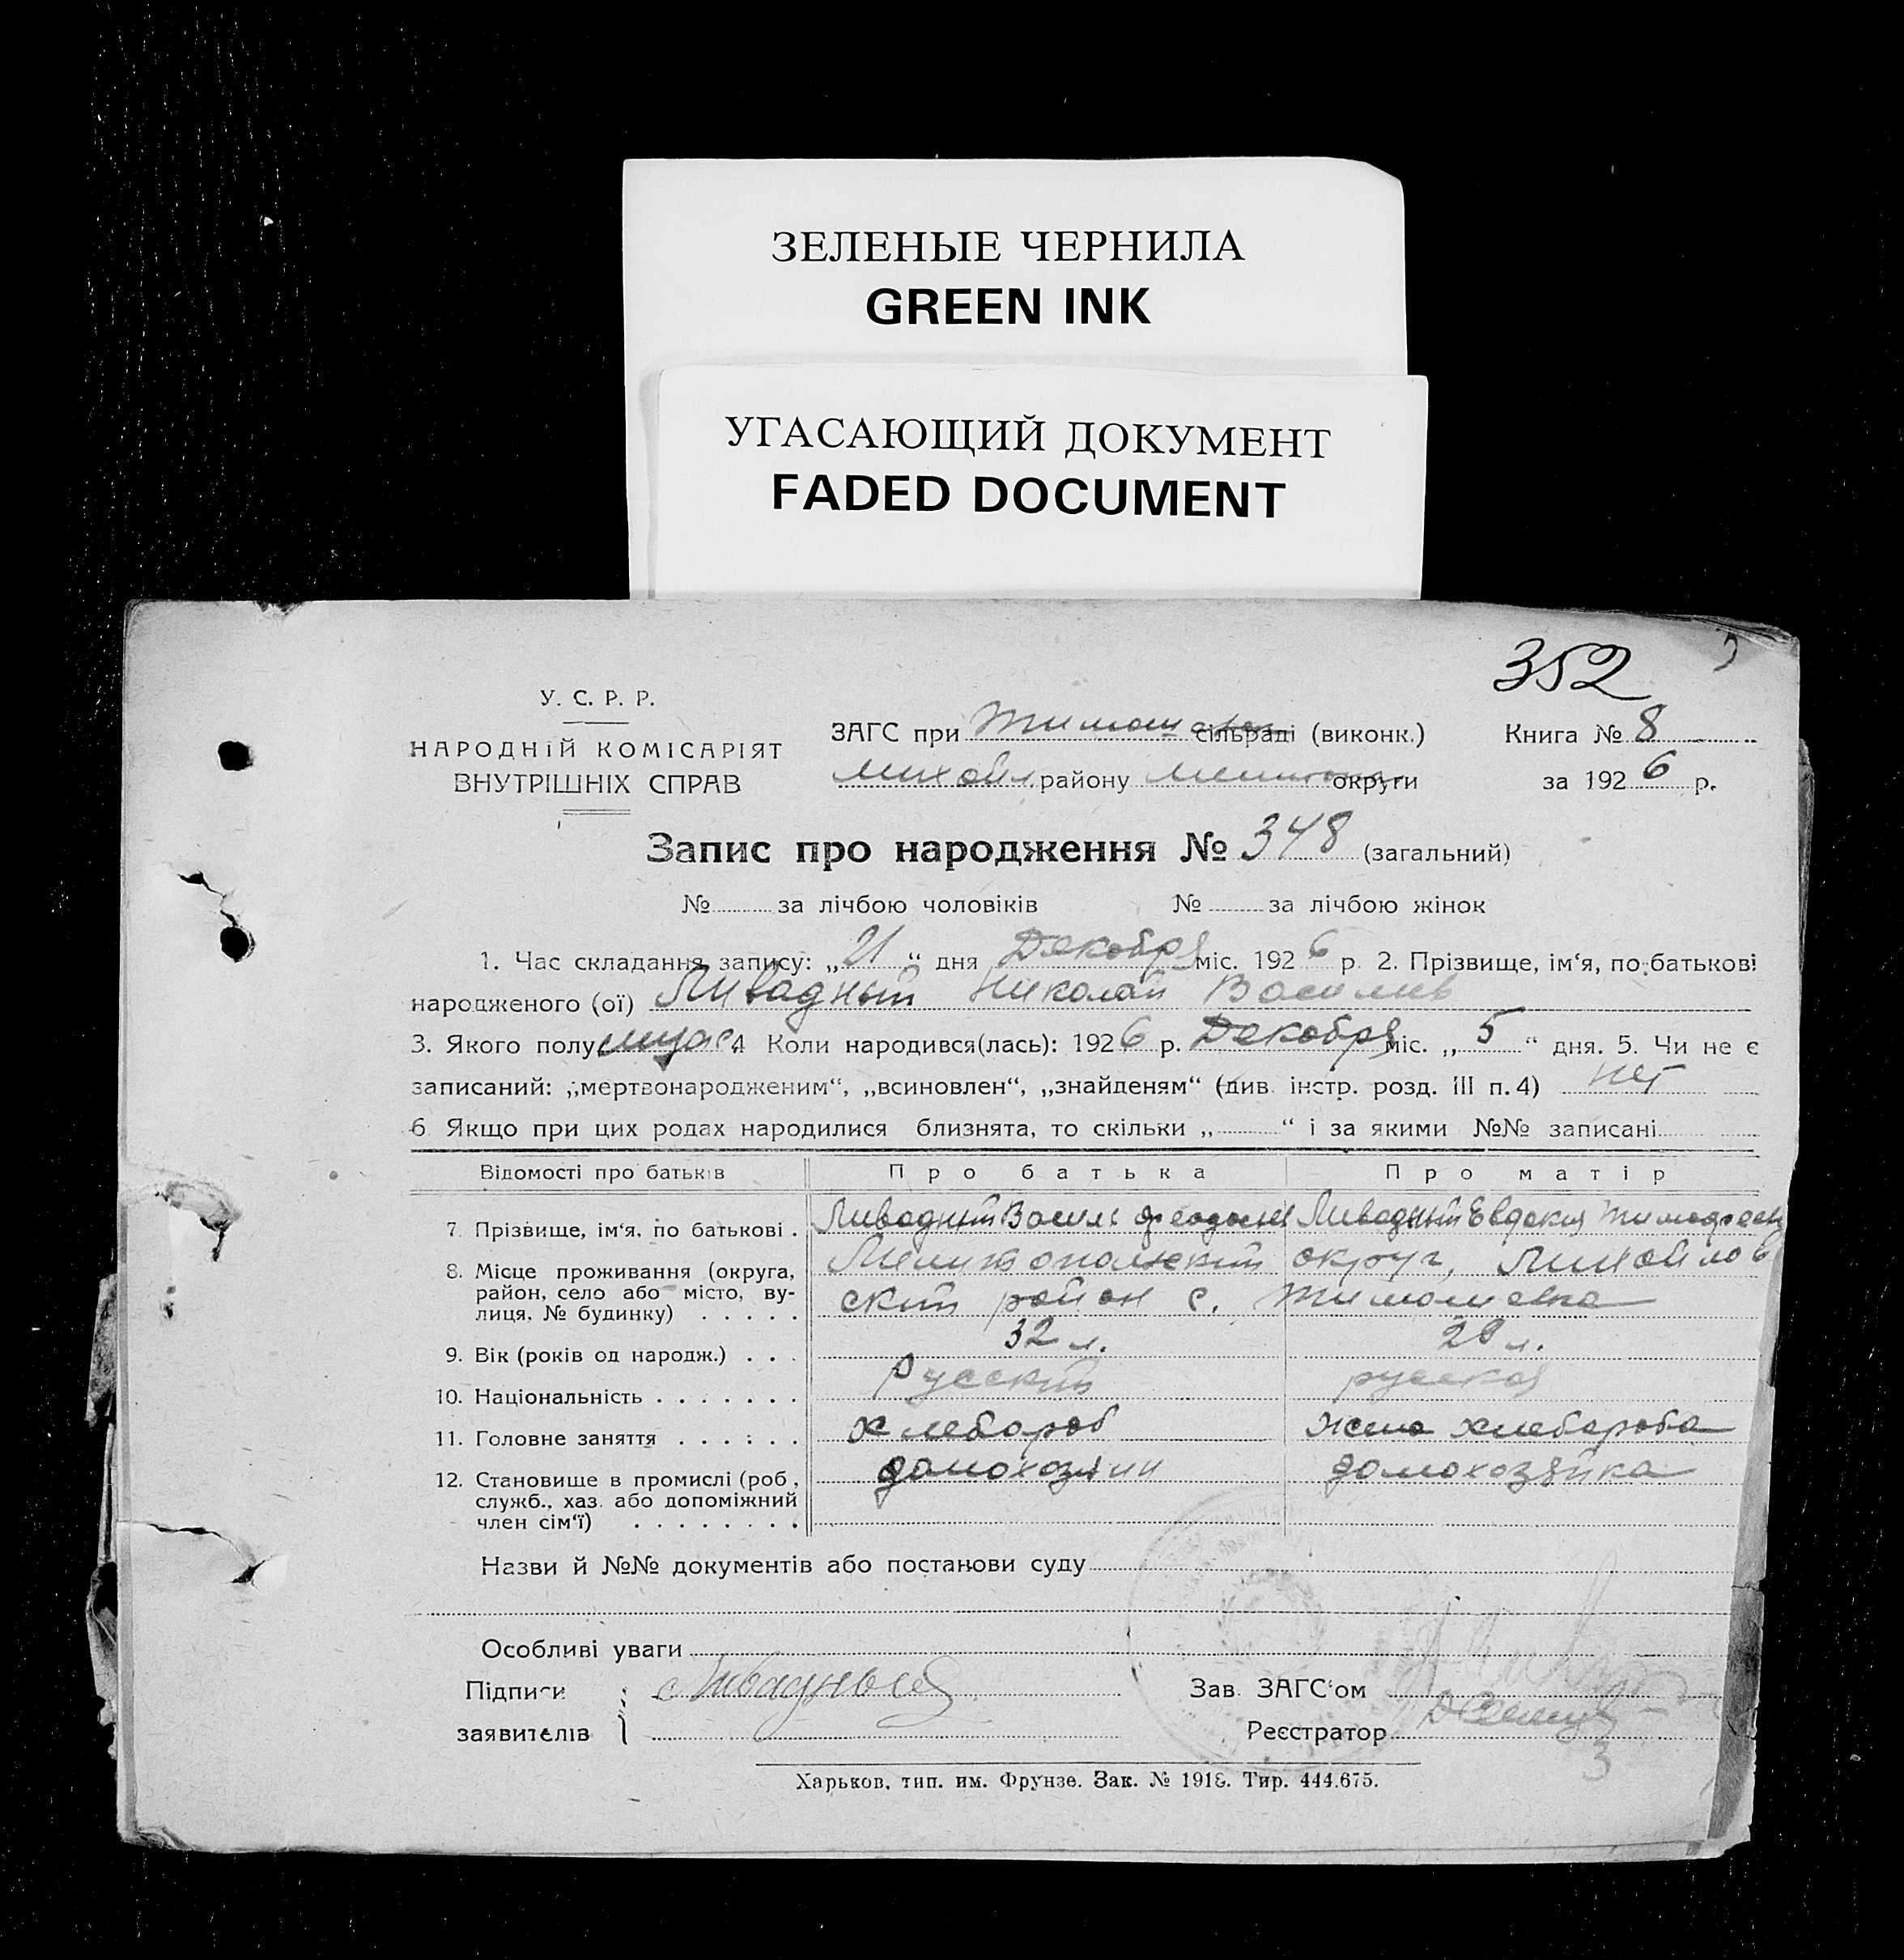 ЗЕЛЕНЫЕ ЧЕРНИЛА
GREEN INK
УГАСАЮЩИЙ ДОКУМЕНТ
FADED DOCUMENT
352
У. С. Р. Р.
НАРОДНІЙ КОМІСАРІЯТ
ВНУТРІШНІХ СПРАВ
ЗАГС при Тимош сільраді (виконк.)
Михайл. району округи
Книга № 8
за 1926 р.
Запис про народження № 348 (загальний)
№ за лічбою чоловіків № за лічбою жінок
1. Час складання запису: „21“ дня Декабря міс. 1926 р. 2. Прізвище, ім‘я, по батькові
народженого (ої) Ливадный Николай Василив
3. Якого полу 4 Коли народився(лась): 1926 р. Декабря міс. „5“ дня. 5. Чи не є
записаний: „мертвонародженим“, „всиновлен“, „знайденям“ (див. інстр. розд. III п. 4) нет
6 Якщо при цих родах народилися близнята, то скільки „ “ і за якими №№ записані
Відомості про батьків Про батька Про матір
7. Прізвище, ім‘я, по батькові . Ливадный Василь Феодосиев Ливадный Евдокия Тимофеев
8. Місце проживання (округа, район, село або місто, вулиця, № будинку) . . . . .
Мелитопольский округ, Михайлов
ский район с. Тимошевка
9. Вік (років од народж.) . . . 32 л. 28 л.
10. Національність . . . . . . . Русский русская
11. Головне заняття . . . . . . Хлебороб жена хлебороба
12. Становище в промислі (роб., служб., хаз. або допоміжний член сім‘ї) . . . . . . . . домохозяин домохозяйка
Назви й №№ документів або постанови суду
Особливі уваги
Підписи заявителів Ливадный
Зав. ЗАГС‘ом
Реєстратор
3
Харьков, тип. им. Фрунзе. Зак. № 1918. Тир. 444.675.